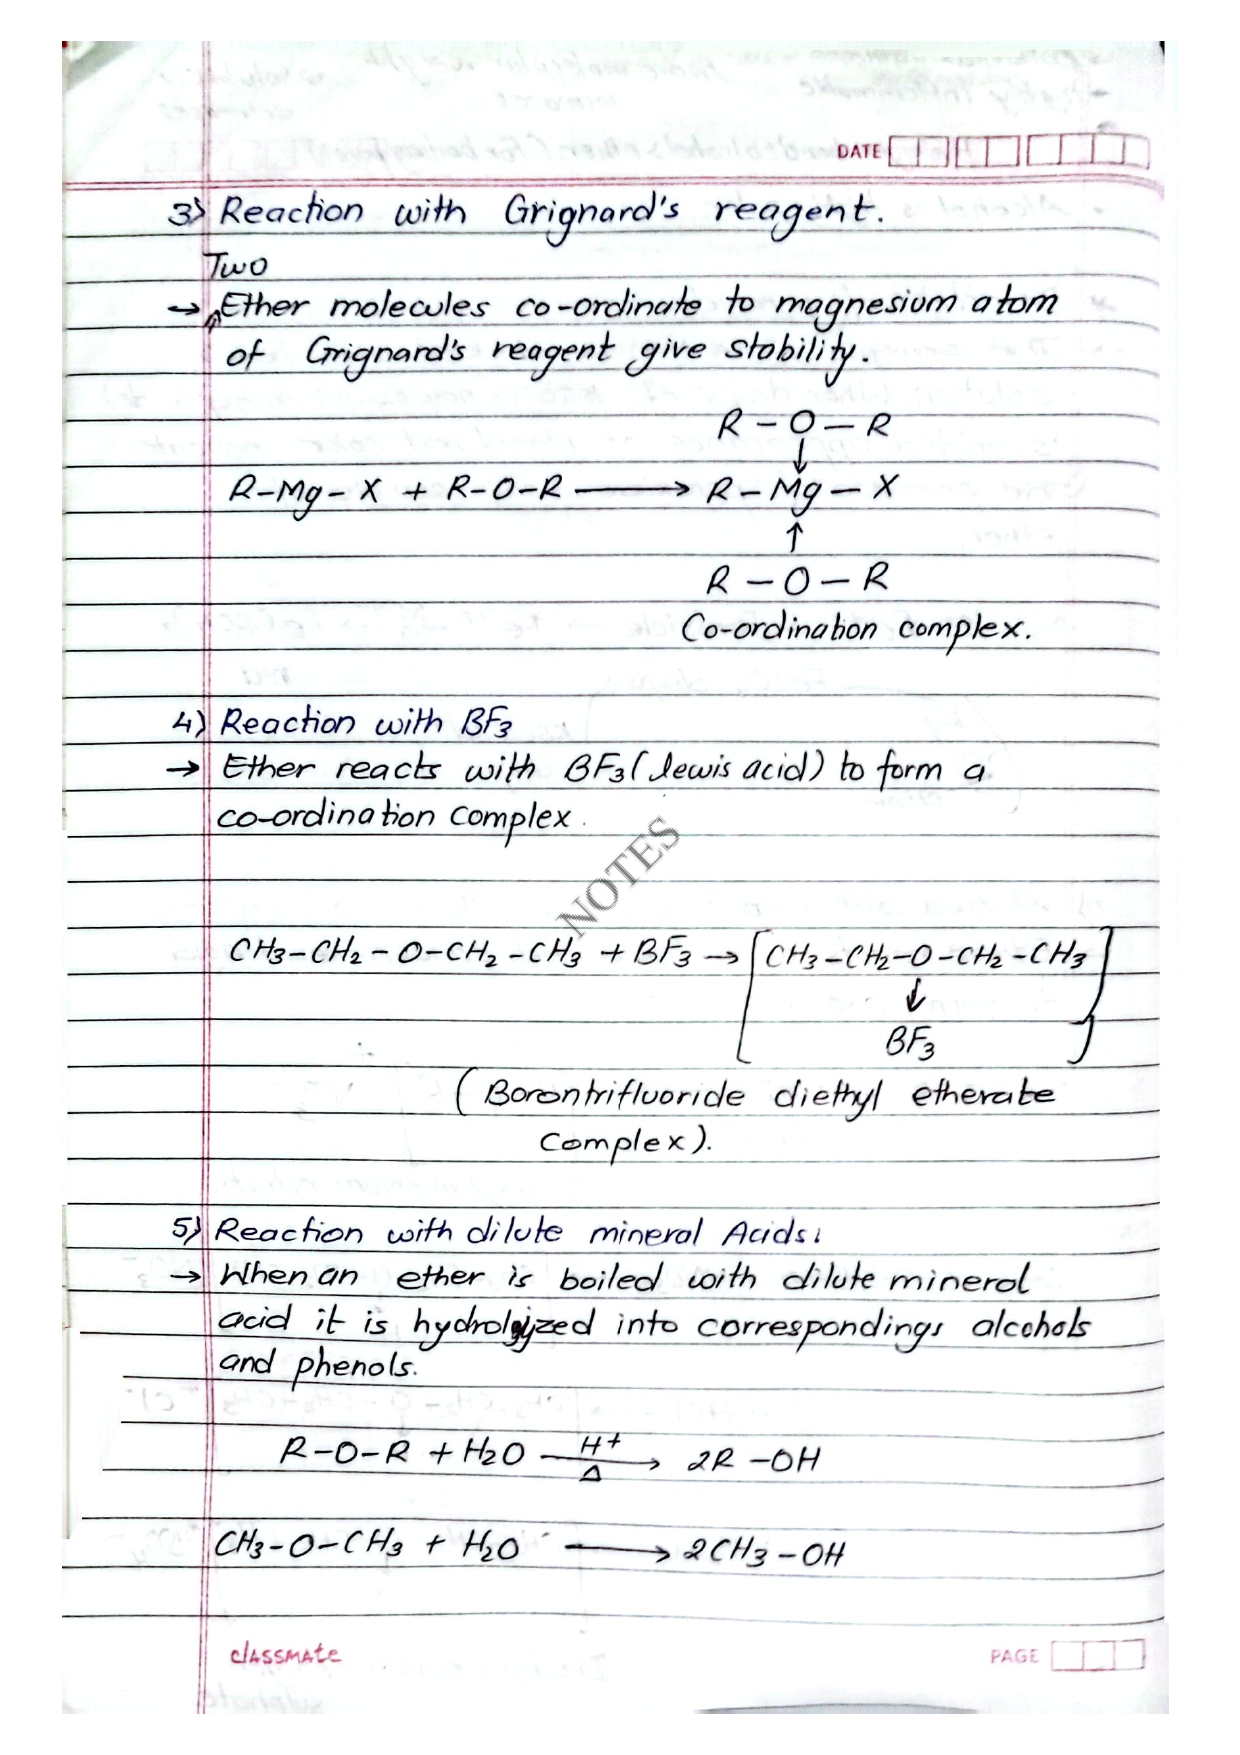 DATE
3) Reaction with Grignard's reagent.
Two
→ Ether molecules co-ordinate to magnesium atom
of Grignard's reagent give stability.
R - O - R
↓
R-Mg-X + R-O-R ⟶ R-Mg-X
↑
R - O - R
Co-ordination complex.
4) Reaction with BF3
→ Ether reacts with BF3 (lewis acid) to form a
co-ordination complex.
NOTES
CH3-CH2-O-CH2-CH3 + BF3 → [CH3-CH2-O-CH2-CH3
↓
BF3]
(Borontrifluoride diethyl etherate
complex).
5) Reaction with dilute mineral Acids:
→ When an ether is boiled with dilute mineral
acid it is hydrolyzed into correspondings alcohols
and phenols.
R-O-R + H2O —H+/Δ→ 2R-OH
CH3-O-CH3 + H2O ⟶ 2CH3-OH
classmate
PAGE